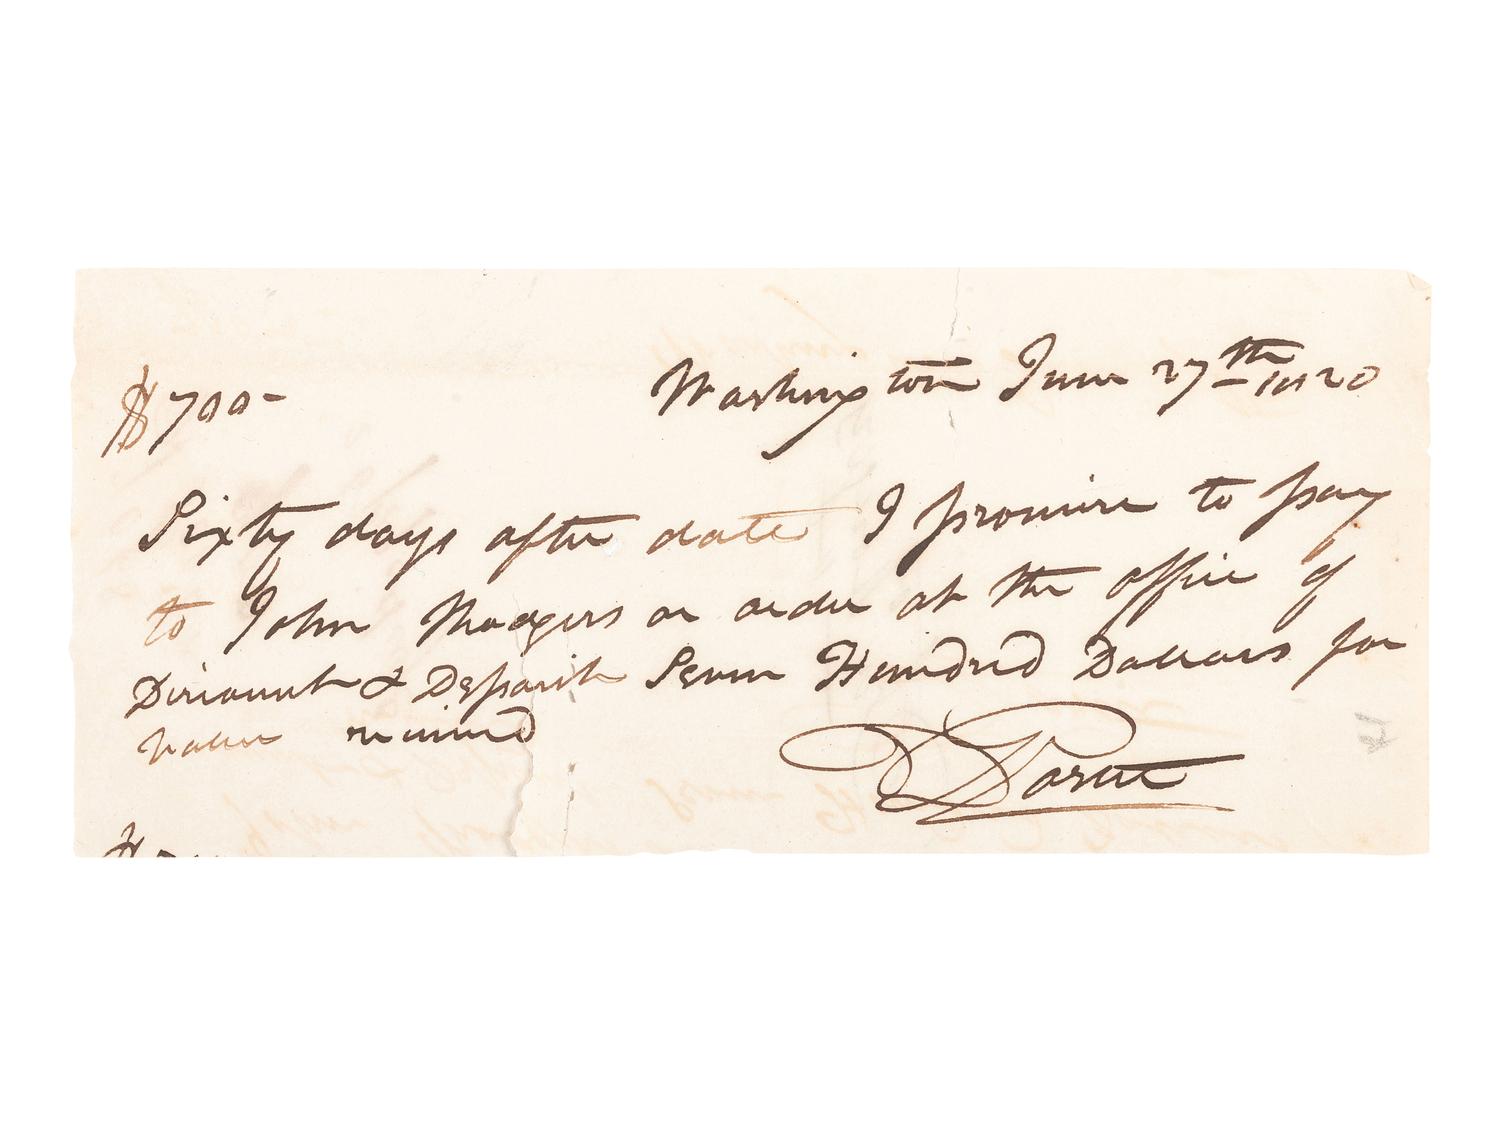 $700- Washington June 27th 1820
Sixty days after date I promise to pay
to John Rodgers or order at the office of
Discount & Deposit Seven Hundred Dollars for
value received
D Porter